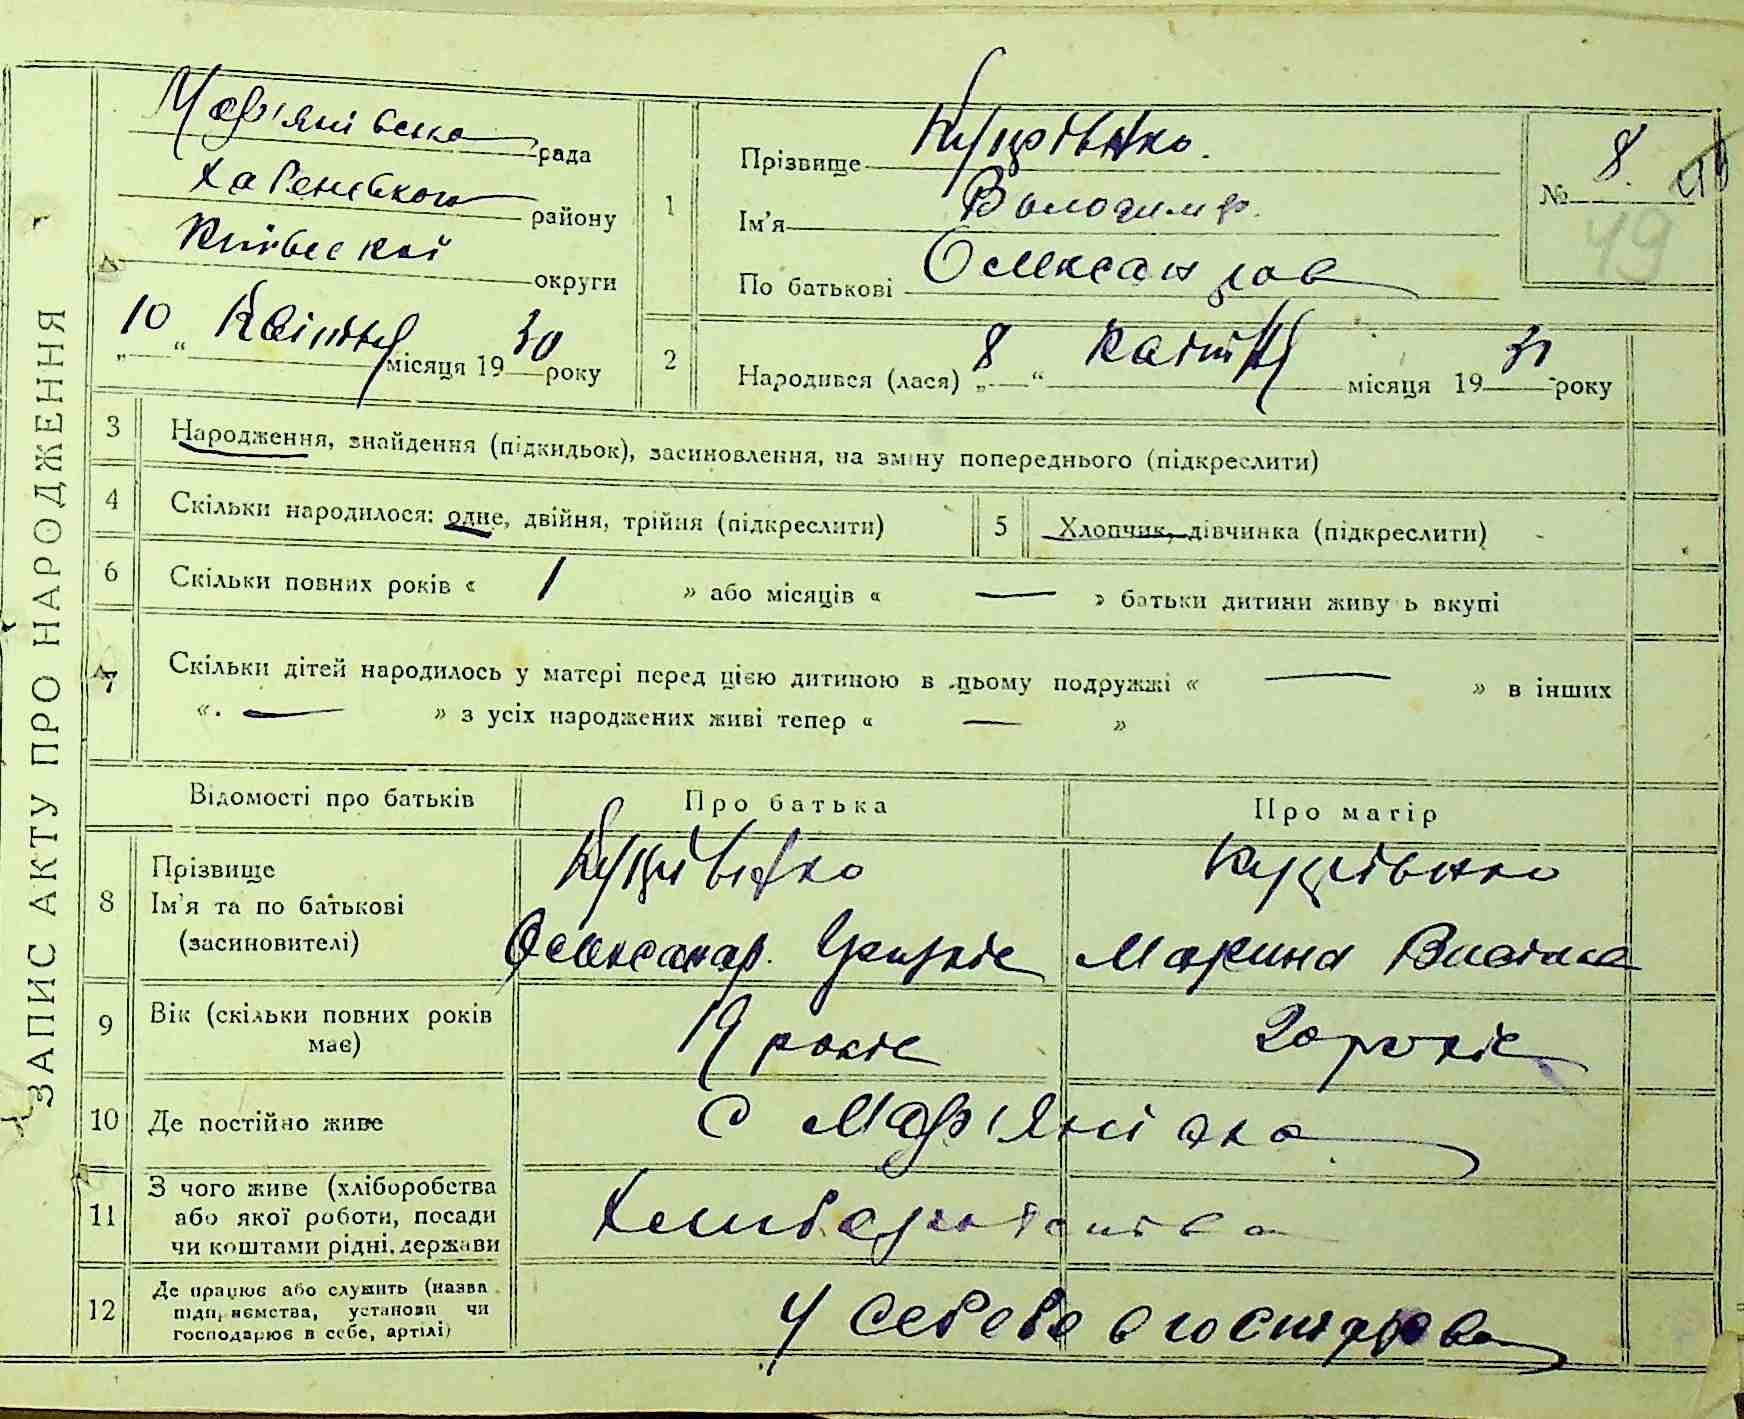 ЗАПИС АКТУ ПРО НАРОДЖЕННЯ
Мар'янівська рада
Хабенського району
Київської округи
„10“ Квітня місяця 1930 року
1
Прізвище Куцівенко.
Ім'я Володимир.
По батькові Олександров
№ 8.
49
2
Народився (лася) „8“ квітня місяця 1930 року
3 Народження, знайдення (підкидьок), засиновлення, на зміну попереднього (підкреслити)
4 Скільки народилося: одне, двійня, трійня (підкреслити)
5 Хлопчик, дівчинка (підкреслити)
6 Скільки повних років « 1 » або місяців « — » батьки дитини живуть вкупі
7 Скільки дітей народилось у матері перед цією дитиною в цьому подружжі « — » в інших
« — » з усіх народжених живі тепер « — »
Відомості про батьків Про батька Про матір
8 Прізвище
Ім'я та по батькові
(засиновителі)
Олександр.
Марина
9 Вік (скільки повних років
має)
19 років 20 років
10 Де постійно живе с Мар'янівка
11 З чого живе (хліборобства
або якої роботи, посади
чи коштами рідні, держави
Хліборобства
12 Де працює або служить (назва
підприємства, установи чи
господарює в себе, артілі)
У себе в господарстві